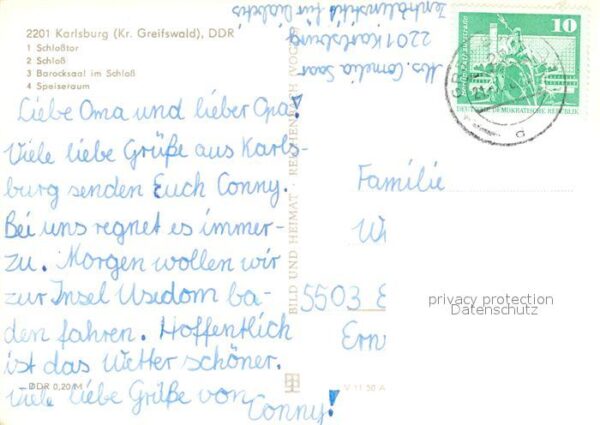 2201 Karlsburg (Kr. Greifswald), DDR
1 Schloßtor
2 Schloß
3 Barocksaal im Schloß
4 Speiseraum
Liebe Oma und lieber Opa!
Viele liebe Grüße aus Karls-
burg senden Euch Conny.
Bei uns regnet es immer-
zu. Morgen wollen wir
zur Insel Usedom ba-
den fahren. Hoffentlich
ist das Wetter schöner.
Viele liebe Grüße von
Conny!
DDR 0,20 M
BILD UND HEIMAT · REICHENBACH (VOGTL)
V 11 50 A
Abs. Cornelia Saar
2201 Karlsburg
Zentralinstitut für Diabetes
10
DEUTSCHE DEMOKRATISCHE REPUBLIK
Familie
W
5503 E
Ern
privacy protection
Datenschutz